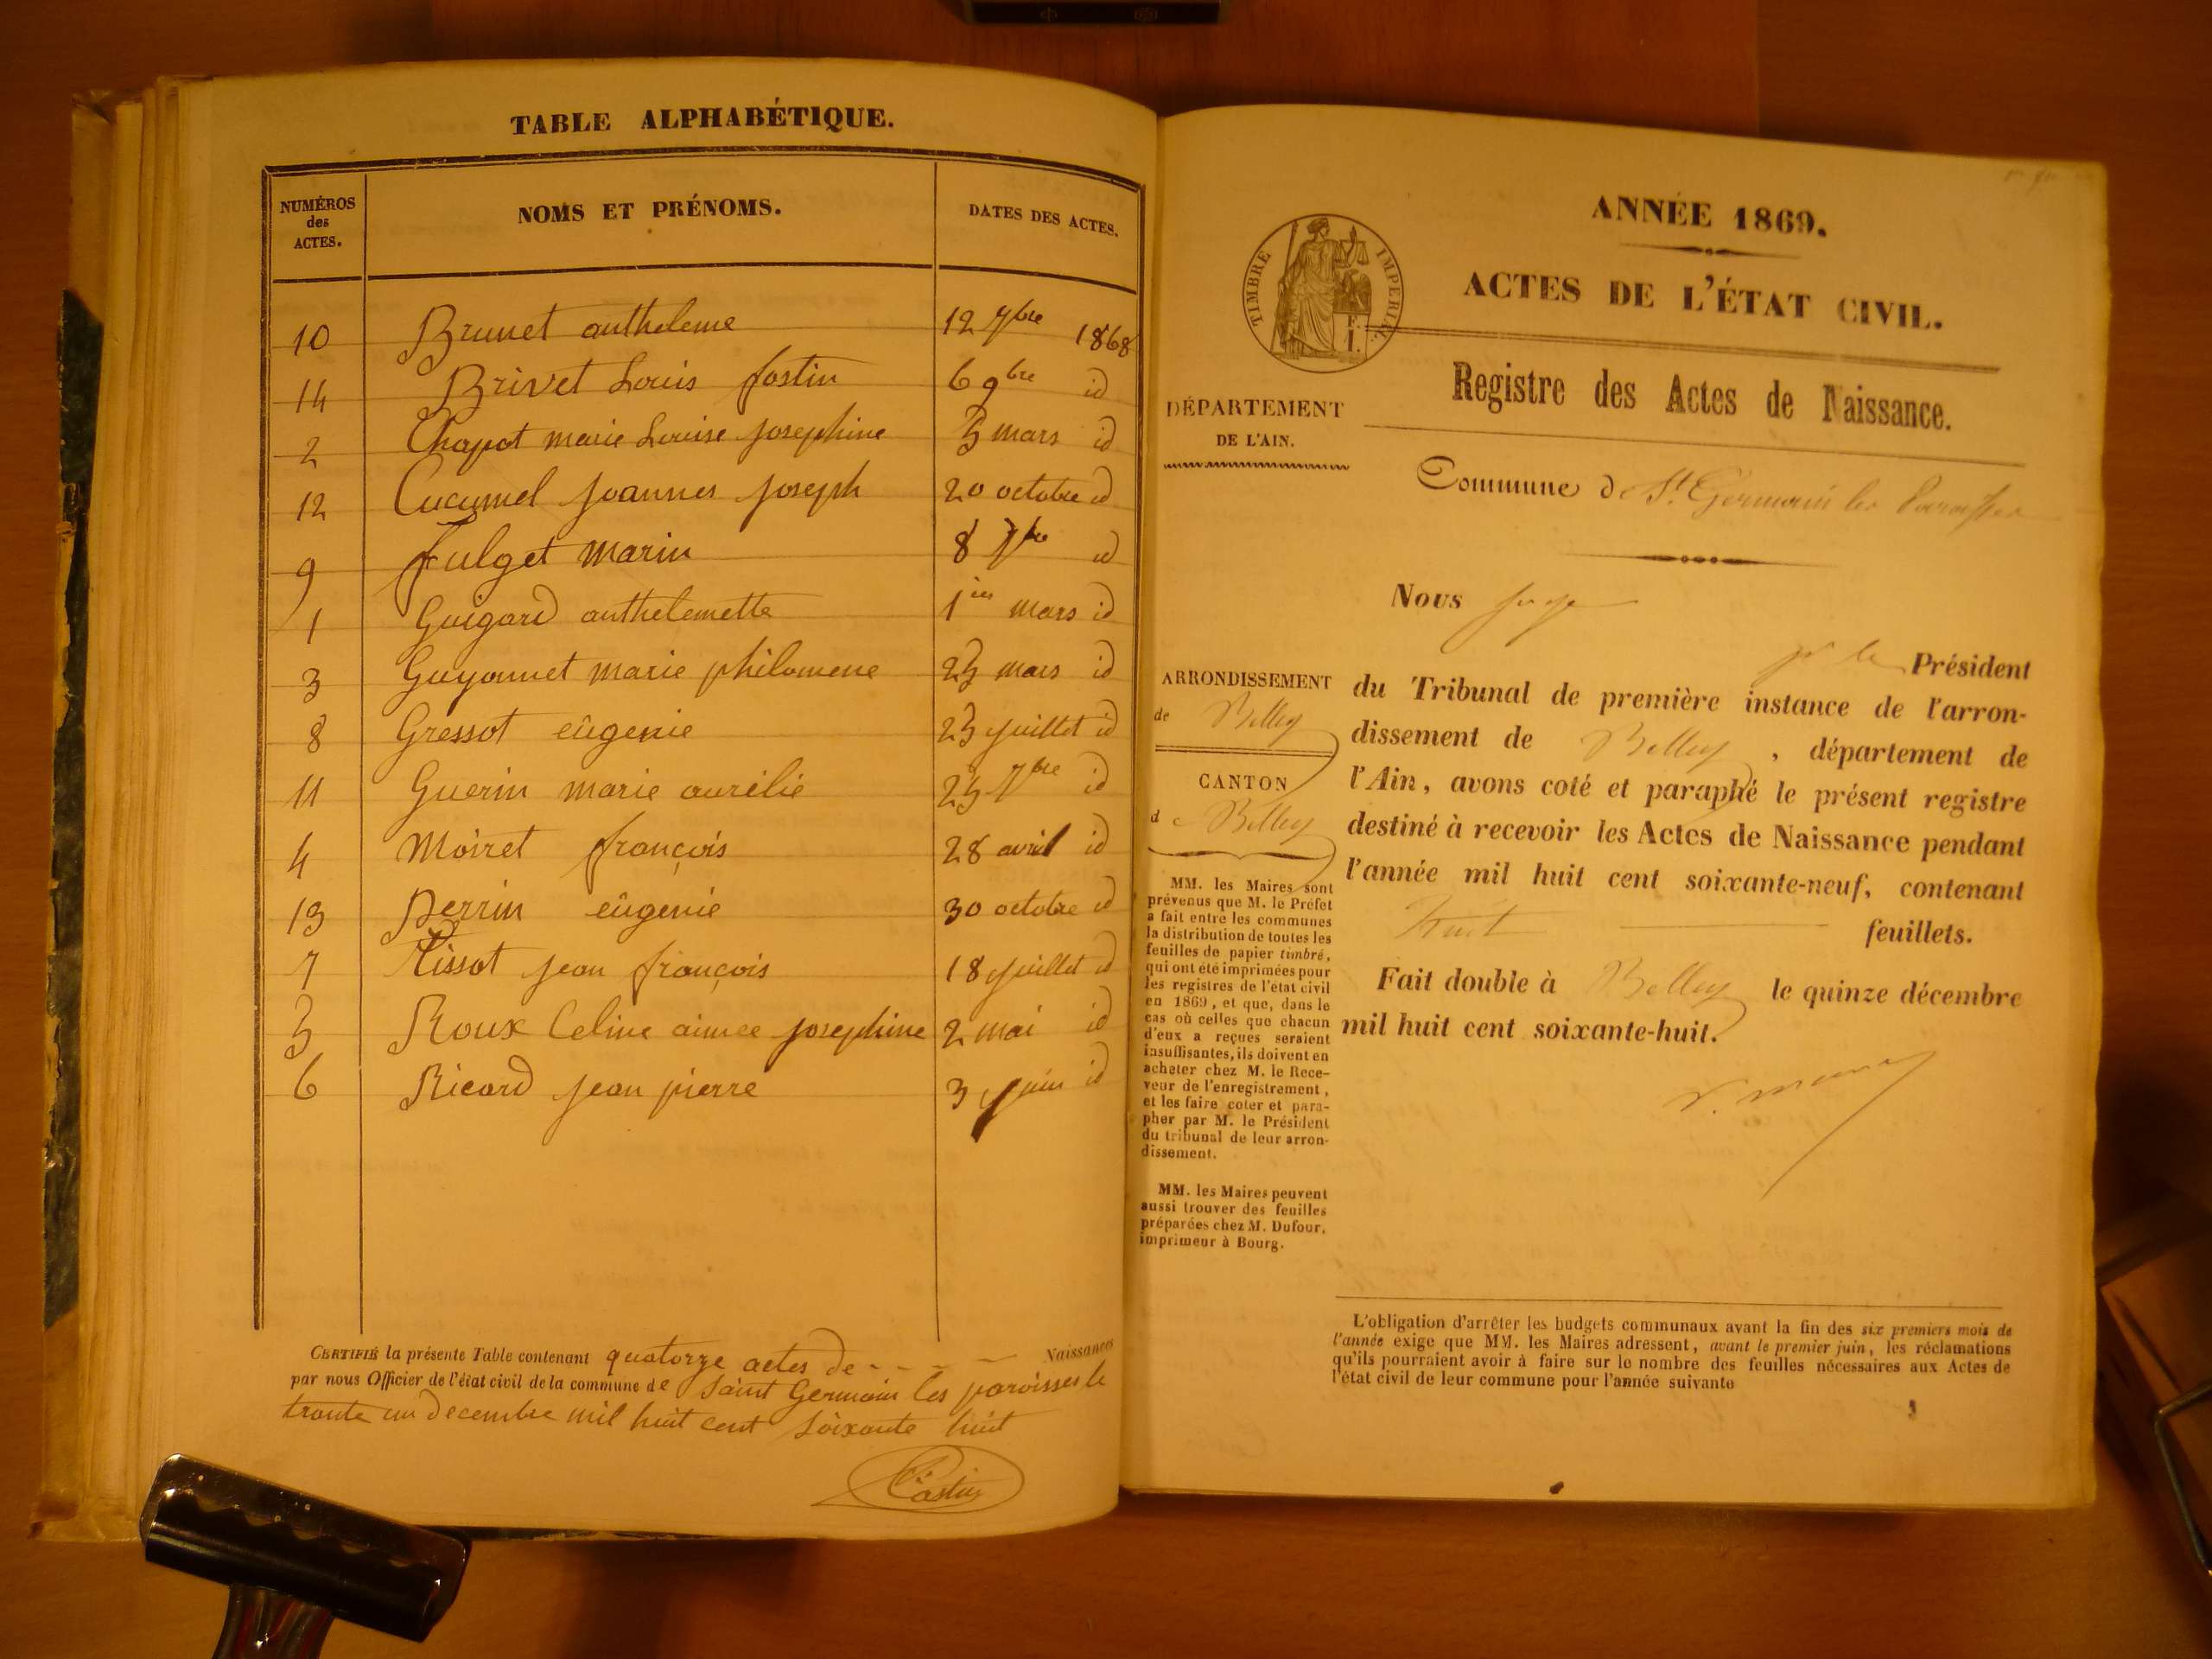 TABLE ALPHABÉTIQUE.
NUMÉROS
des
ACTES.
NOMS ET PRÉNOMS.
DATES DES ACTES.
10 Brunet antheleme 12 7bre 1868
14 Brivet Louis fostin 6 9bre id
2 Chapot marie Louise josephine 5 mars id
12 Cucumel joannes joseph 20 octobre id
9 fulget marin 8 7bre id
1 Guigard anthelemette 1ier mars id
3 Guyonnet marie philomene 25 mars id
8 Gressot eûgenie 25 juillet id
11 Guerin marie aurélie 25 7bre id
4 Moiret françois 28 avril id
13 Perrin eûgenie 30 octobre id
7 Rissot jean françois 18 juillet id
5 Roux Celine aimee josephine 2 mai id
6 Ricard jean pierre 3 juin id
CERTIFIÉ la présente Table contenant quatorze actes de - - - - Naissances
par nous Officier de l'état civil de la commune de Saint Germain les paroisses le
trante un decembre mil huit cent soixante huit
ANNÉE 1869.
ACTES DE L'ÉTAT CIVIL.
TIMBRE IMPERIAL.
F.
1.
Registre des Actes de Naissance.
DÉPARTEMENT
DE L'AIN.
Commune de St. Germain les Paroisses
Nous juge
pr le Président
du Tribunal de première instance de l'arron-
dissement de Belley, département de
l'Ain, avons coté et paraphé le présent registre
destiné à recevoir les Actes de Naissance pendant
l'année mil huit cent soixante-neuf, contenant
huit feuillets.
Fait double à Belley le quinze décembre
mil huit cent soixante-huit.
ARRONDISSEMENT
de Belley
CANTON
de Belley
MM. les Maires sont
prévenus que M. le Préfet
a fait entre les communes
la distribution de toutes les
feuilles de papier timbré,
qui ont été imprimées pour
les registres de l'état civil
en 1869, et que, dans le
cas où celles que chacun
d'eux a reçues seraient
insuffisantes, ils doivent en
acheter chez M. le Rece-
veur de l'enregistrement,
et les faire coter et para-
pher par M. le Président
du tribunal de leur arron-
dissement.
MM. les Maires peuvent
aussi trouver des feuilles
préparées chez M. Dufour,
imprimeur à Bourg.
L'obligation d'arrêter les budgets communaux avant la fin des six premiers mois de
l'année exige que MM. les Maires adressent, avant le premier juin, les réclamations
qu'ils pourraient avoir à faire sur le nombre des feuilles nécessaires aux Actes de
l'état civil de leur commune pour l'année suivante